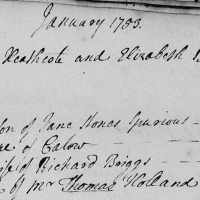 January 1783.
Heathcote and Elizabeth
on of Jane Jones Spurious —
of Calow —
ife of Richard Briggs —
of Mr Thomas Holland